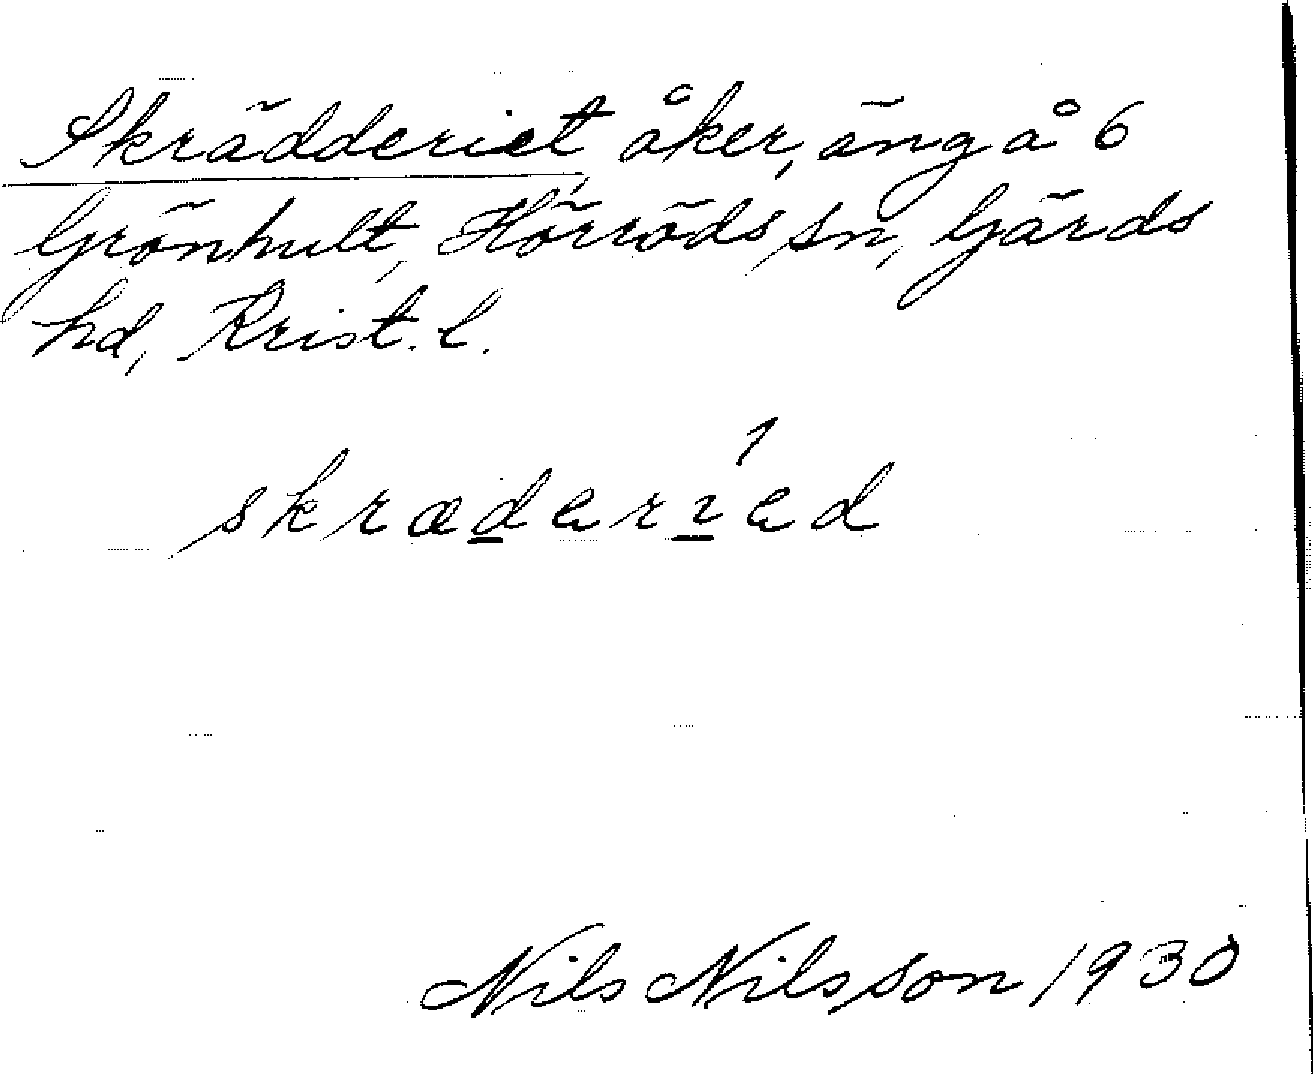 Skrädderiet, åker, äng å 6
Grönhult, Hörröds sn, Gärds
hd, Krist. l.
1
skrædarıad
Nils Nilsson 1930